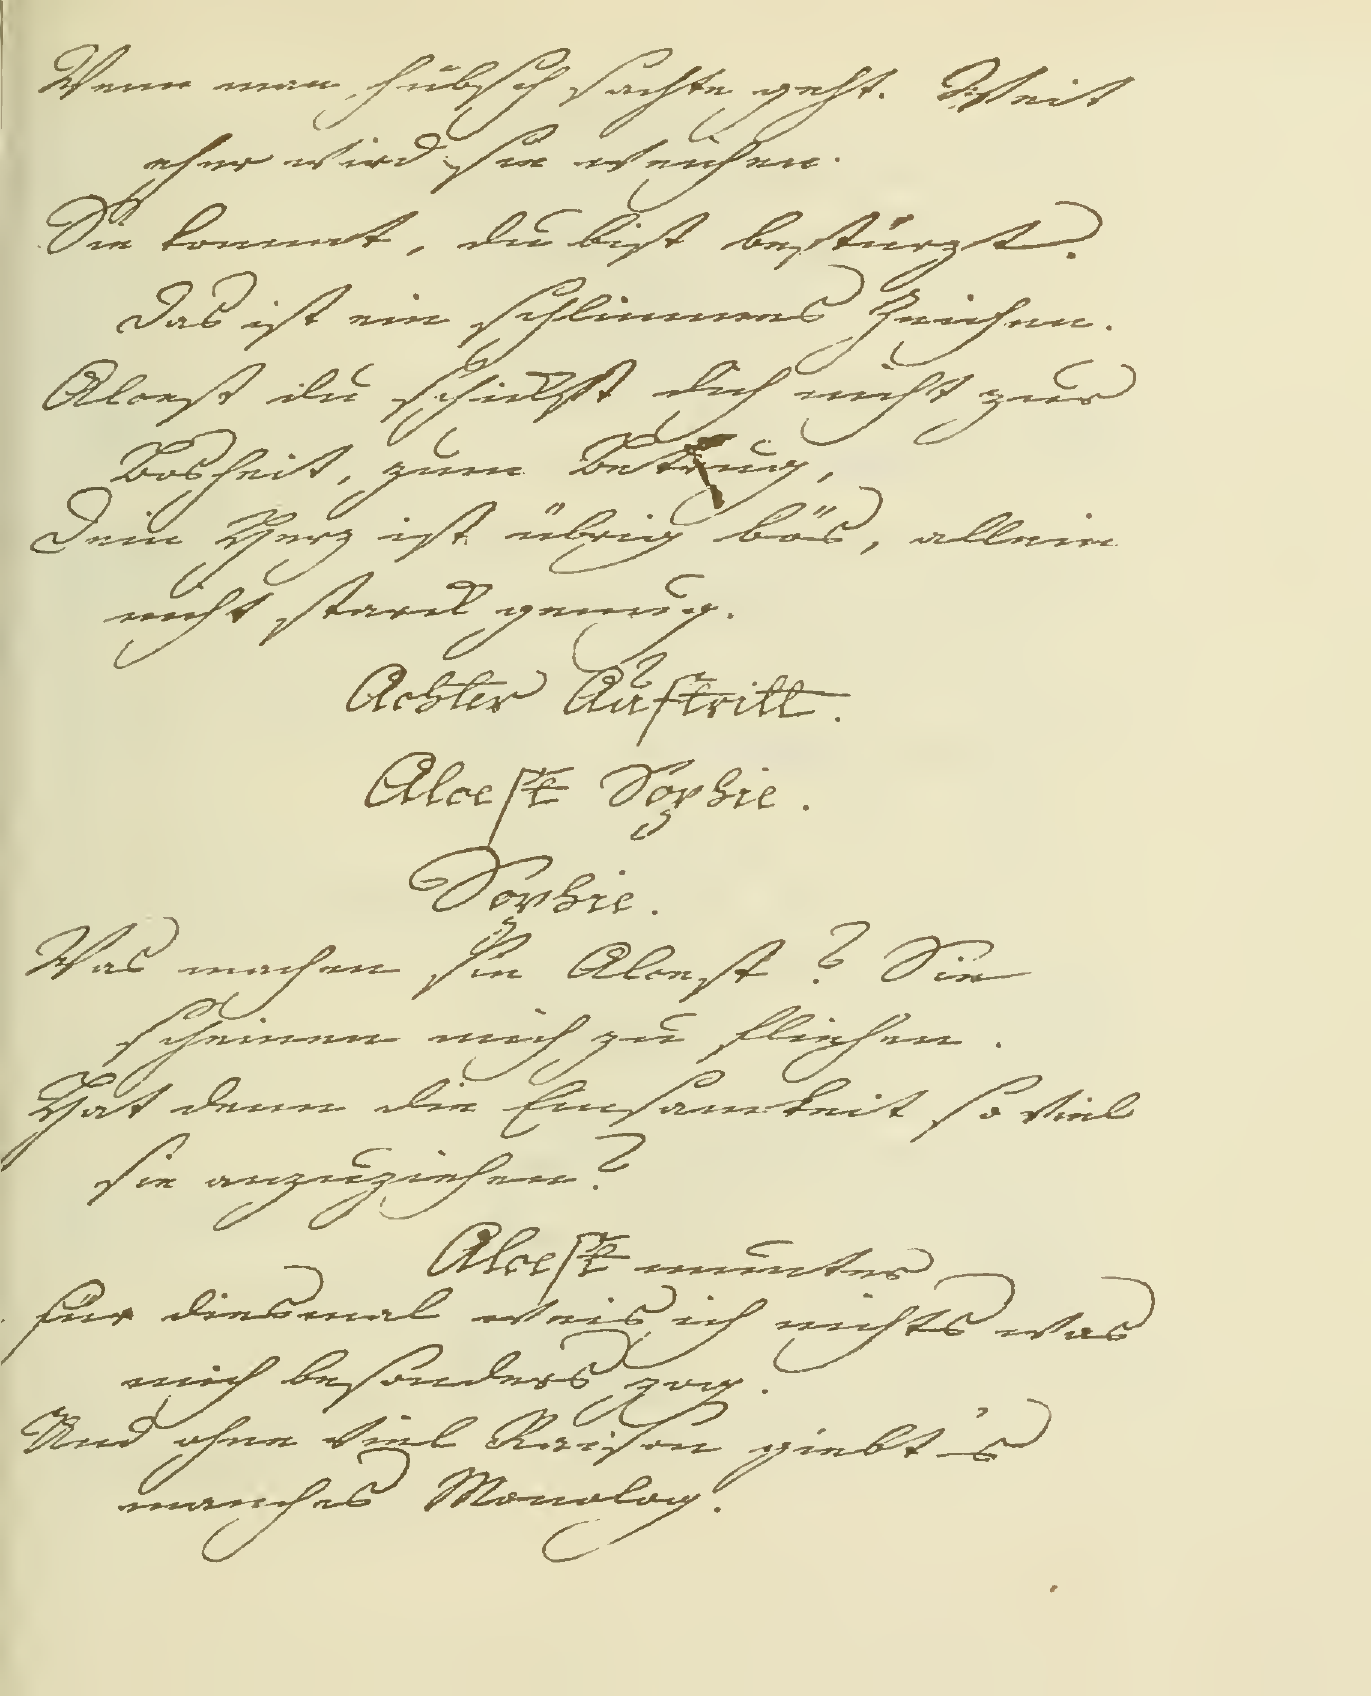 Wenn man hübsch sachte geht. Weit
eher wird sie weichen.
Sie kommt, du bist bestürzt.
Das ist ein schlimmes Zeichen.
Alcest du schickst dich nicht zur
Bosheit, zum Betrug,
Dein Herz ist übrig bös, allein
nicht starck genug.
Achter Auftritt.
Alceste Sophie.
Sophie.
Was machen Sie Alcest? Sie
scheinen mich zu fliehen.
Hat denn die Einsamkeit so viel
sie anzuziehen?
Alceste munter
für diesmal weis ich nichts was
mich besonders zog.
Und ohne viel Raison giebt's
manches Monolog.